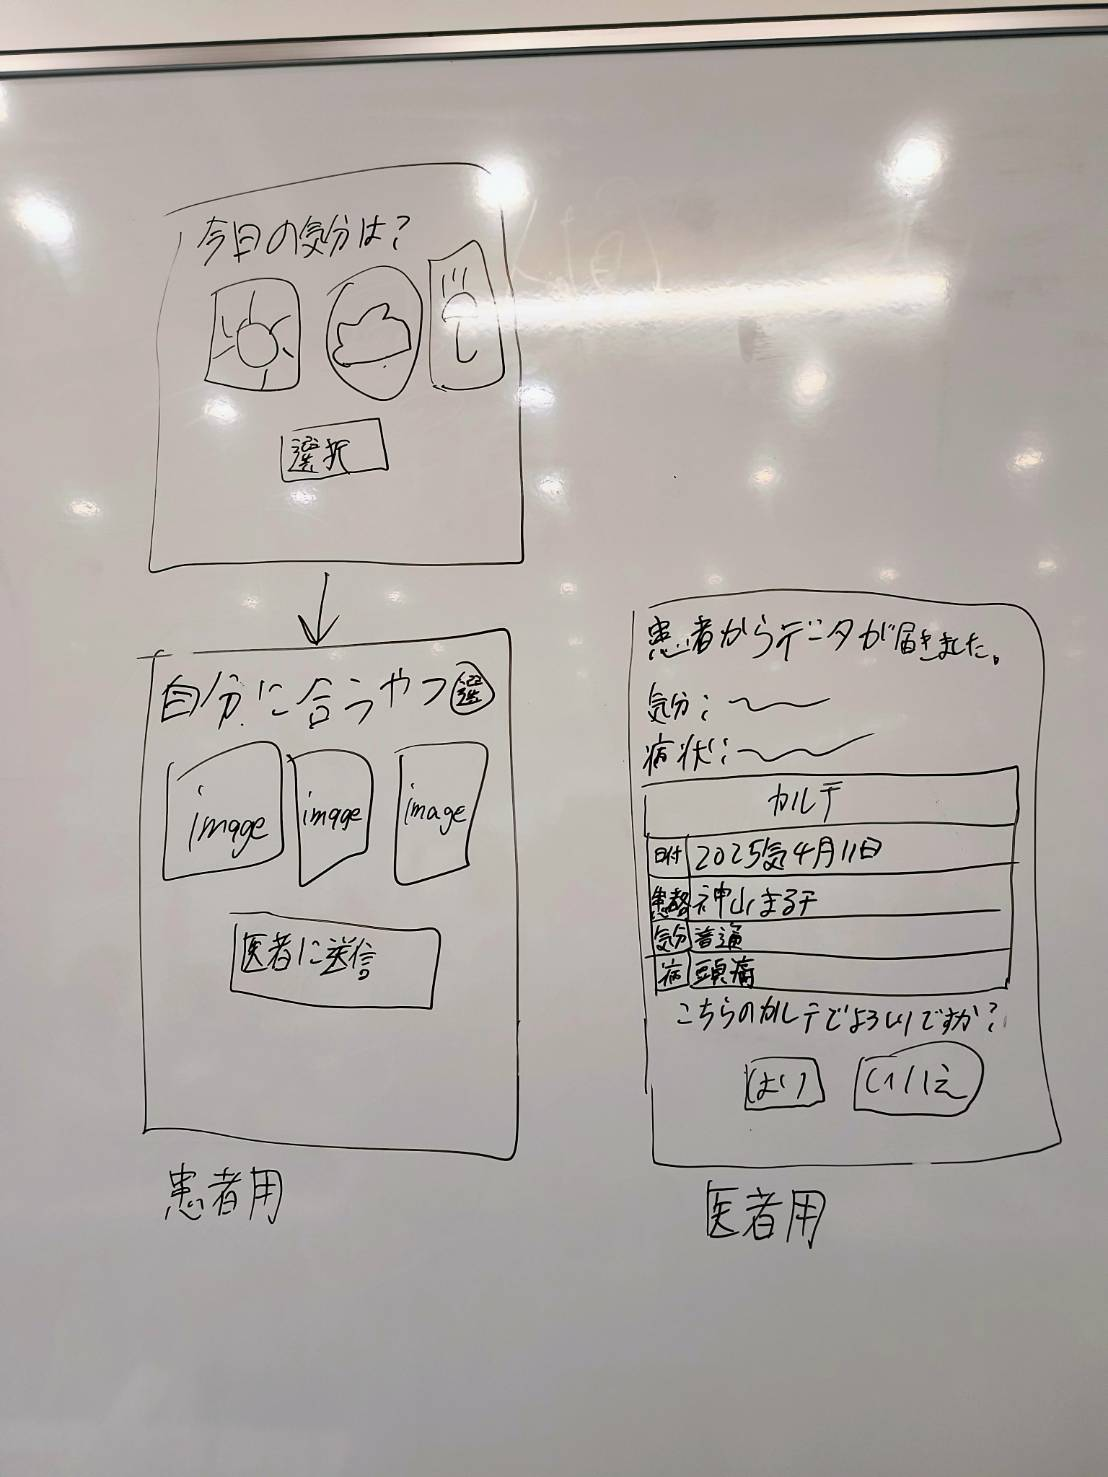 今日の気分は?
選択
自分に合うやつ選
image image image
医者に送信
患者用
患者からデータが届きました。
気分:
病状:
カルテ
日付 2025気4月11日
神山まる子
気分 普通
病 頭痛
こちらのカルテでよろしいですか?
はい いいえ
医者用